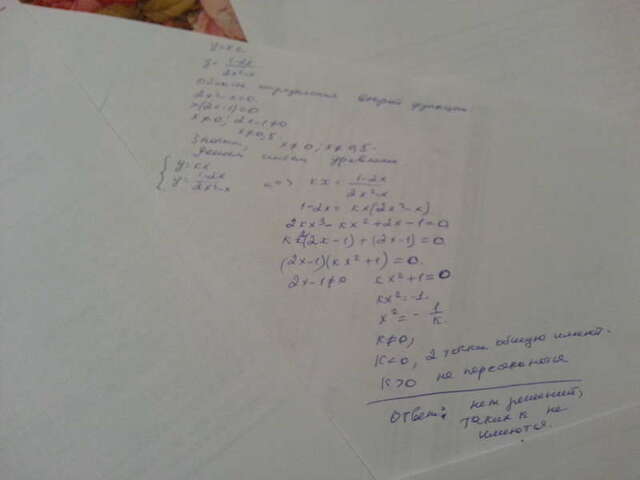 y = kx
y = \frac{1-2x}{2x^2-x}
Область определения второй функции:
2x^2-x≠0
x(2x-1)≠0
x≠0; 2x-1≠0
x≠0,5
Значит, x≠0, x≠0,5.
уравнения
{ y=kx
y=\frac{1-2x}{2x^2-x} <=> kx = \frac{1-2x}{2x^2-x}
1-2x = kx(2x^2-x)
2kx^3-kx^2+2x-1=0
kx^2(2x-1)+(2x-1)=0
(2x-1)(kx^2+1)=0.
2x-1≠0 kx^2+1=0
kx^2=-1.
x^2=-\frac{1}{k}.
k≠0;
k<0, 2 точки общую имеют.
k>0 не пересекаются
Ответ: нет решений,
таких k не
имеются.